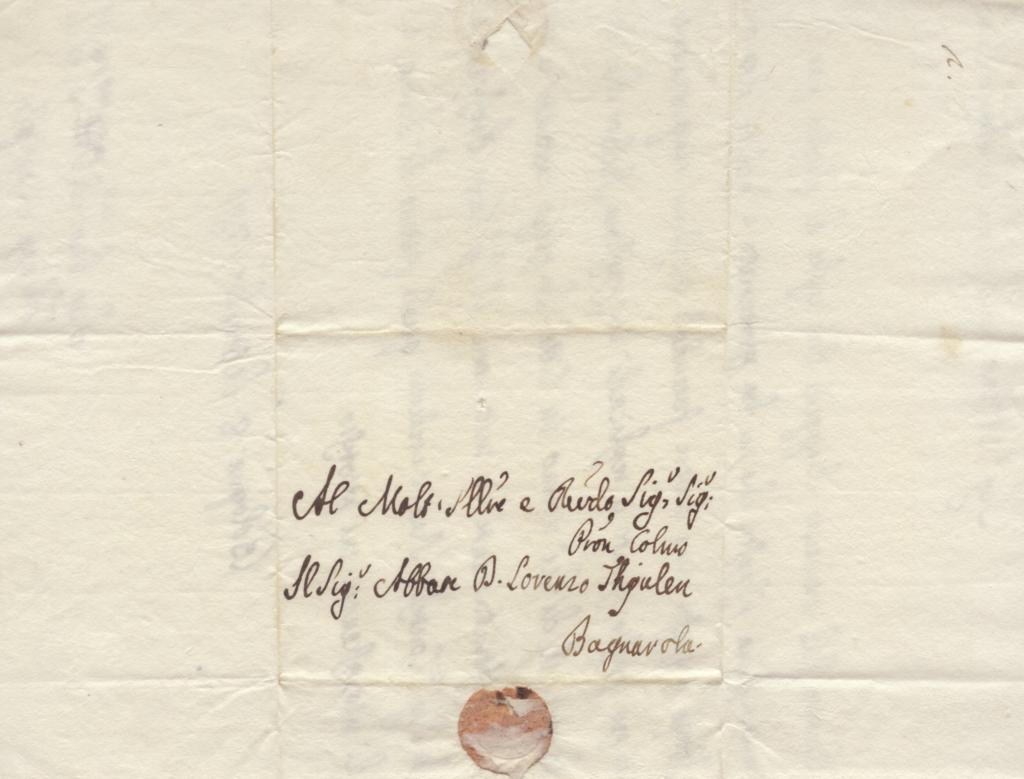 Al Molt. Illre e Revdo Sigr. Sigr.
Pron Colmo
Il Sigr. Abbate D. Lorenzo Thjulen
Bagnarola.